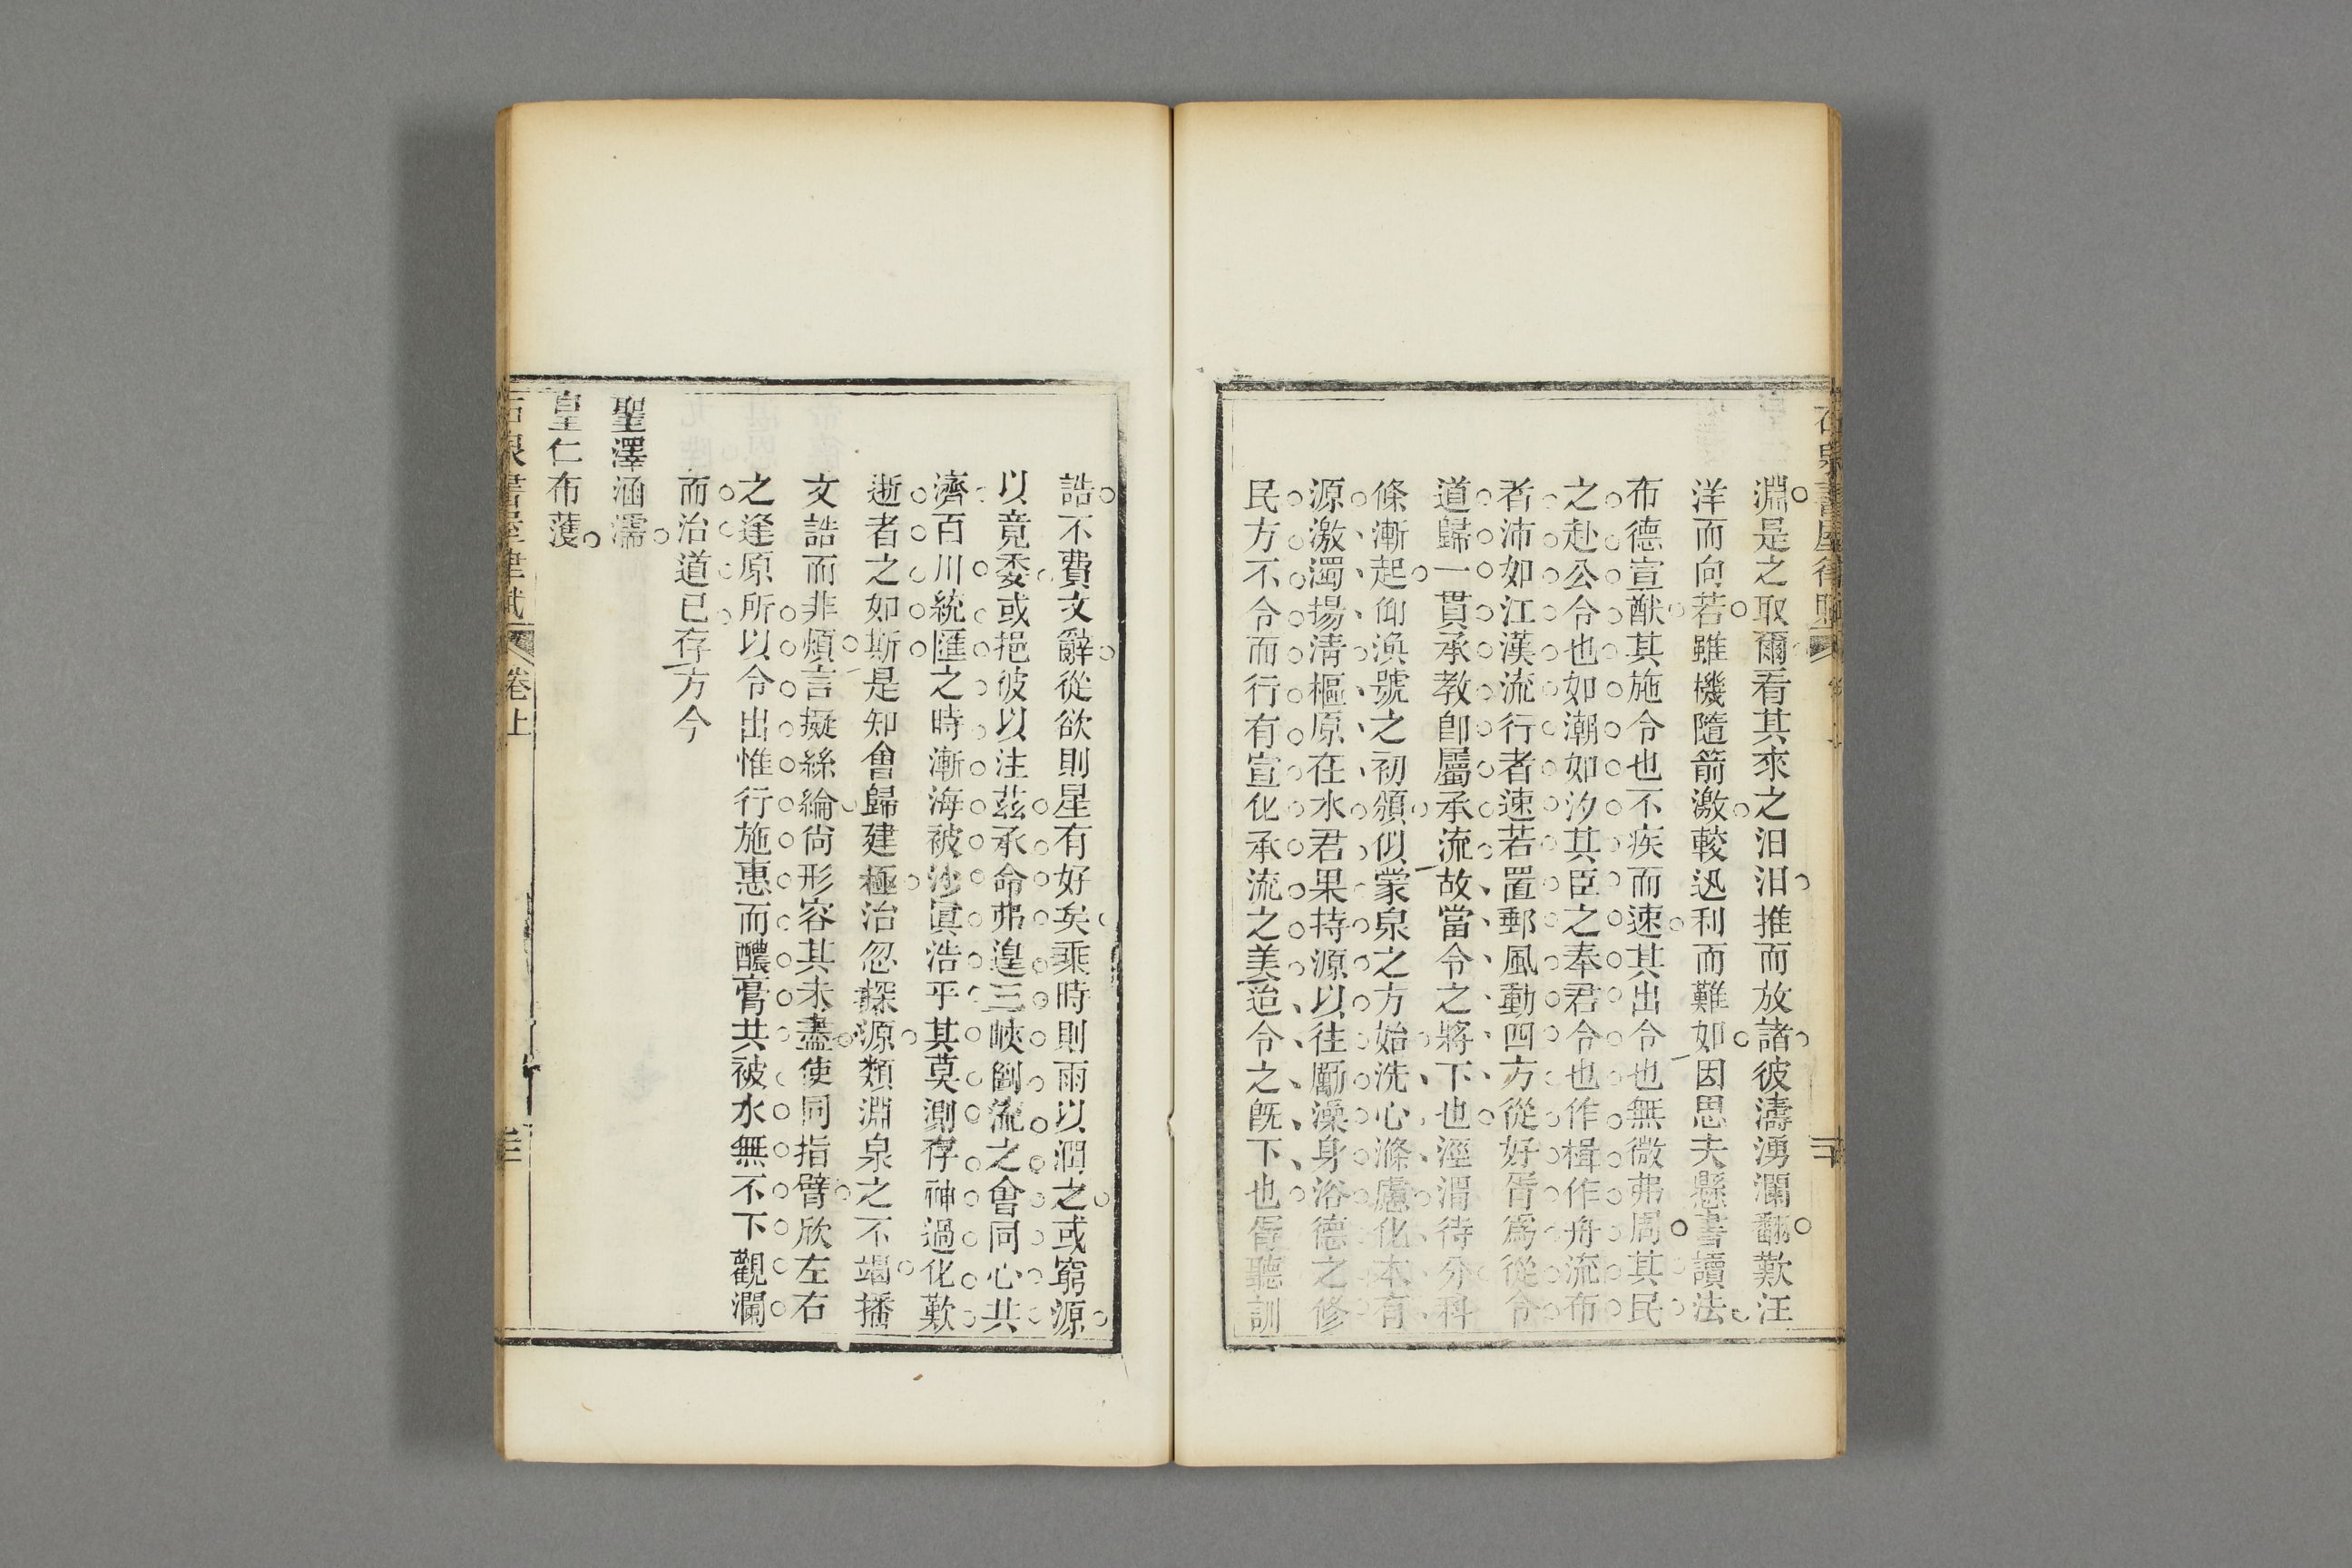 石泉書屋律賦
淵是之取爾看其來之汩汩推而放諸彼濤湧瀾翻歎汪
洋而向若雖機隨箭激較迅利而難如因思夫懸書讀法
布德宣猷其施令也不疾而速其出令也無微弗周其民
之赴公令也如潮如汐其臣之奉君令也作楫作舟流布
者沛如江漢流行者速若置郵風動四方從好胥爲從令
道歸一貫承教卽屬承流故當令之將下也涇渭待分科
條漸起仰渙號之初頒似蒙泉之方始洗心滌慮化本有
源激濁揚清樞原在水君果持源以往勵澡身浴德之修
民方不令而行有宣化承流之美迨令之既下也胥聽訓
誥不費文辭從欲則星有好矣乘時則雨以潤之或窮源
以竟委或挹彼以注茲承命弗遑三峽倒流之會同心共
濟百川統匯之時漸海被沙眞浩乎其莫測存神過化歎
逝者之如斯是知會歸建極治忽探源類淵泉之不竭播
文誥而非煩言擬絲綸尙形容其未盡使同指臂欣左右
之逢原所以令出惟行施惠而醲膏共被水無不下觀瀾
而治道已存方今
聖澤涵濡
皇仁布濩
石泉書屋律賦 卷上